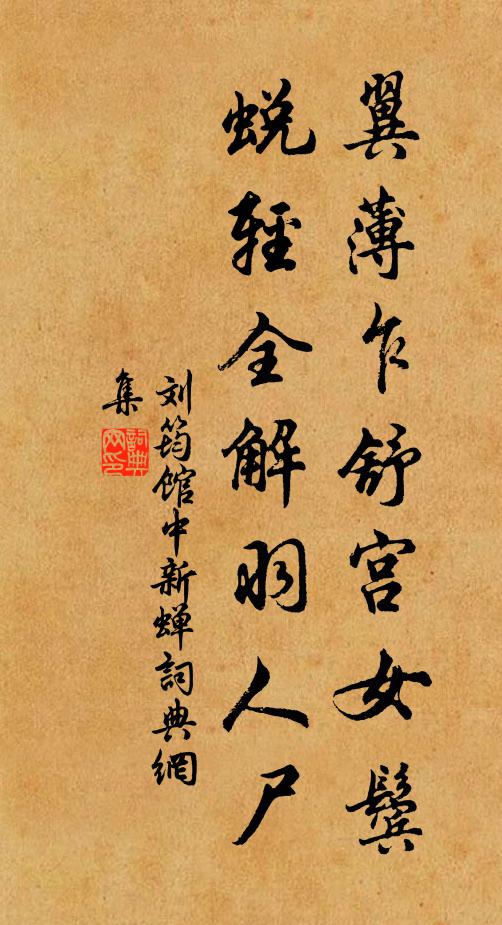 翼薄乍舒宫女鬓
蜕轻全解羽人尸
刘筠馆中新蝉詞典網
集
詞典
网印